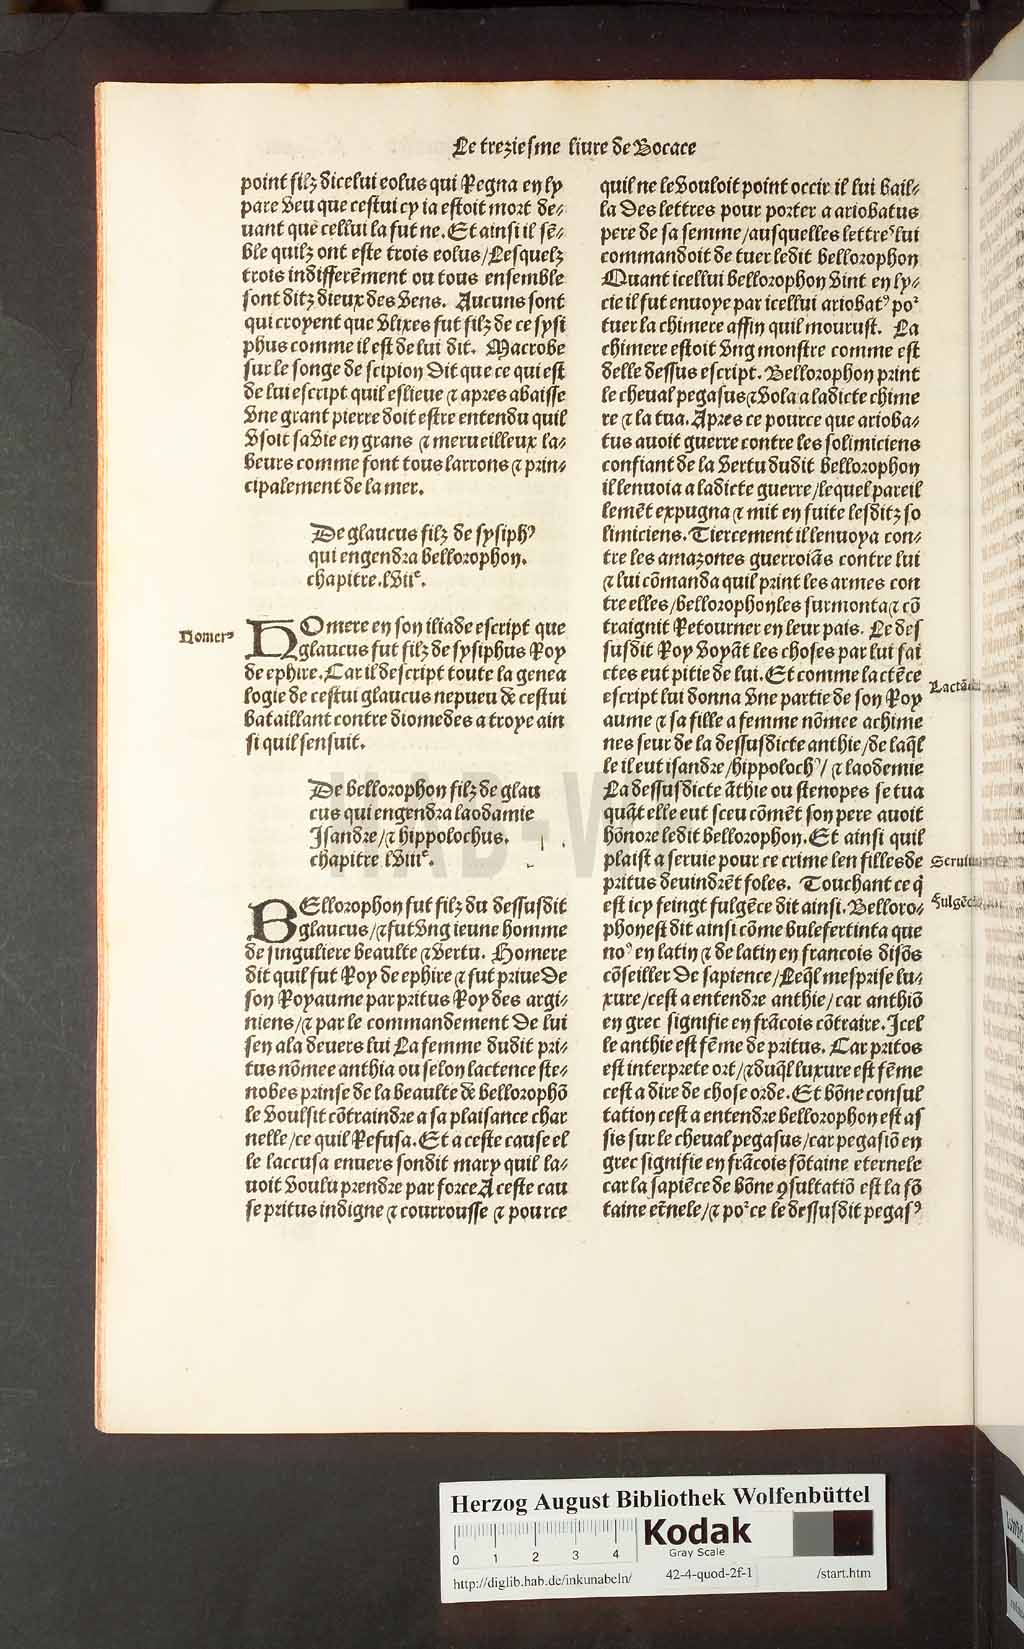 Le treziesme liure de Bocace
point filz dicelui eolus qui Regna en ly
pare veu que cestui cy ia estoit mort de⸗
uant que cellui la fut ne. Et ainsi il sē⸗
ble quilz ont este trois eolus/Lesquelz
trois indifferēment ou tous ensemble
sont ditz dieux des vens. Aucuns sont
qui croyent que vlixes fut filz de ce sysi
phus comme il est de lui dit. Macrobe
sur le songe de scipion dit que ce qui est
de lui escript quil eslieue ⁊ apres abaisse
vne grant pierre doit estre entendu quil
vsoit sa vie en grans ⁊ merueilleux la⸗
beurs comme font tous larrons ⁊ prin⸗
cipalement de la mer.
De glaucus filz de sysiphꝰ
qui engendra bellorophon.
chapitre. lviiᵉ.
Homerꝰ
HOmere en son iliade escript que
glaucus fut filz de sysiphus Roy
de ephire. Car il descript toute la genea
logie de cestui glaucus nepueu de cestui
bataillant contre diomedes a troye ain
si quil sensuit.
De bellorophon filz de glau
cus qui engendra laodamie
Isandre/⁊ hippolochus.
chapitre lviiiᵉ.
BEllorophon fut filz du dessusdit
glaucus/⁊ fut vng ieune homme
de singuliere beaulte ⁊ vertu. Homere
dit quil fut Roy de ephire ⁊ fut priue de
son Royaume par pritus Roy des argi⸗
niens/⁊ par le commandement de lui
sen ala deuers lui La femme dudit pri⸗
tus nōmee anthia ou selon lactence ste⸗
nobes prinse de la beaulte de bellorophō
le voulsit cōtraindre a sa plaisance char
nelle/ce quil Refusa. Et a ceste cause el
le laccusa enuers sondit mary quil la⸗
uoit voulu prendre par force A ceste cau
se pritus indigne ⁊ courrousse ⁊ pource
quil ne le vouloit point occir il lui bail⸗
la des lettres pour porter a ariobatus
pere de sa femme/ausquelles lettreˢ lui
commandoit de tuer ledit bellorophon
Quant icellui bellorophon vint en ly⸗
cie il fut enuoye par icellui ariobatꝰ poꝛ
tuer la chimere affin quil mourust. La
chimere estoit vng monstre comme est
delle dessus escript. Bellorophon print
le cheual pegasus ⁊ vola a ladicte chime
re ⁊ la tua. Apres ce pource que arioba⸗
tus auoit guerre contre les solimiciens
confiant de la vertu dudit bellorophon
il lenuoia a ladicte guerre/lequel pareil
lemēt expugna ⁊ mit en fuite lesditz so
limiciens. Tiercement il lenuoya con⸗
tre les amazones guerroiās contre lui
⁊ lui cōmanda quil print les armes con
tre elles/bellorophon les surmonta ⁊ cō
traignit Retourner en leur pais. Le des
susdit Roy voyāt les choses par lui fai
ctes eut pitie de lui. Et comme lactēce
escript lui donna vne partie de son Roy
aume ⁊ sa fille a femme nōmee achime
nes seur de la dessusdicte anthie/de laq̄l
le il eut isandre/hippolochꝰ/⁊ laodemie
La dessusdicte āthie ou stenopes se tua
quāt elle eut sceu cōmēt son pere auoit
hōnore ledit bellorophon. Et ainsi quil
plaist a seruie pour ce crime len filles de
pritus deuindrēt foles. Touchant ce q̄
est icy feingt fulgēce dit ainsi. Belloro⸗
phon est dit ainsi cōme bulefertinta que
noꝰ en latin ⁊ de latin en francois disōs
cōseiller de sapience/Leq̄l mesprise lu⸗
xure/cest a entendre anthie/car anthiō
en grec signifie en frācois cōtraire. Icel
le anthie est fēme de pritus. Car pritos
est interprete ort/⁊ duq̄l luxure est fēme
cest a dire de chose orde. Et bōne consul
tation cest a entendre bellorophon est as
sis sur le cheual pegasus/car pegasiō en
grec signifie en frācois fōtaine eternele
car la sapiēce de bōne ꝯsultatiō est la fō
taine et̄nele/⁊ poꝛ ce le dessusdit pegasꝰ
Herzog August Bibliothek Wolfenbüttel
0 1 2 3 4
Kodak
Gray Scale
http://diglib.hab.de/inkunabeln/ 42-4-quod-2f-1 /start.htm
HAB-W